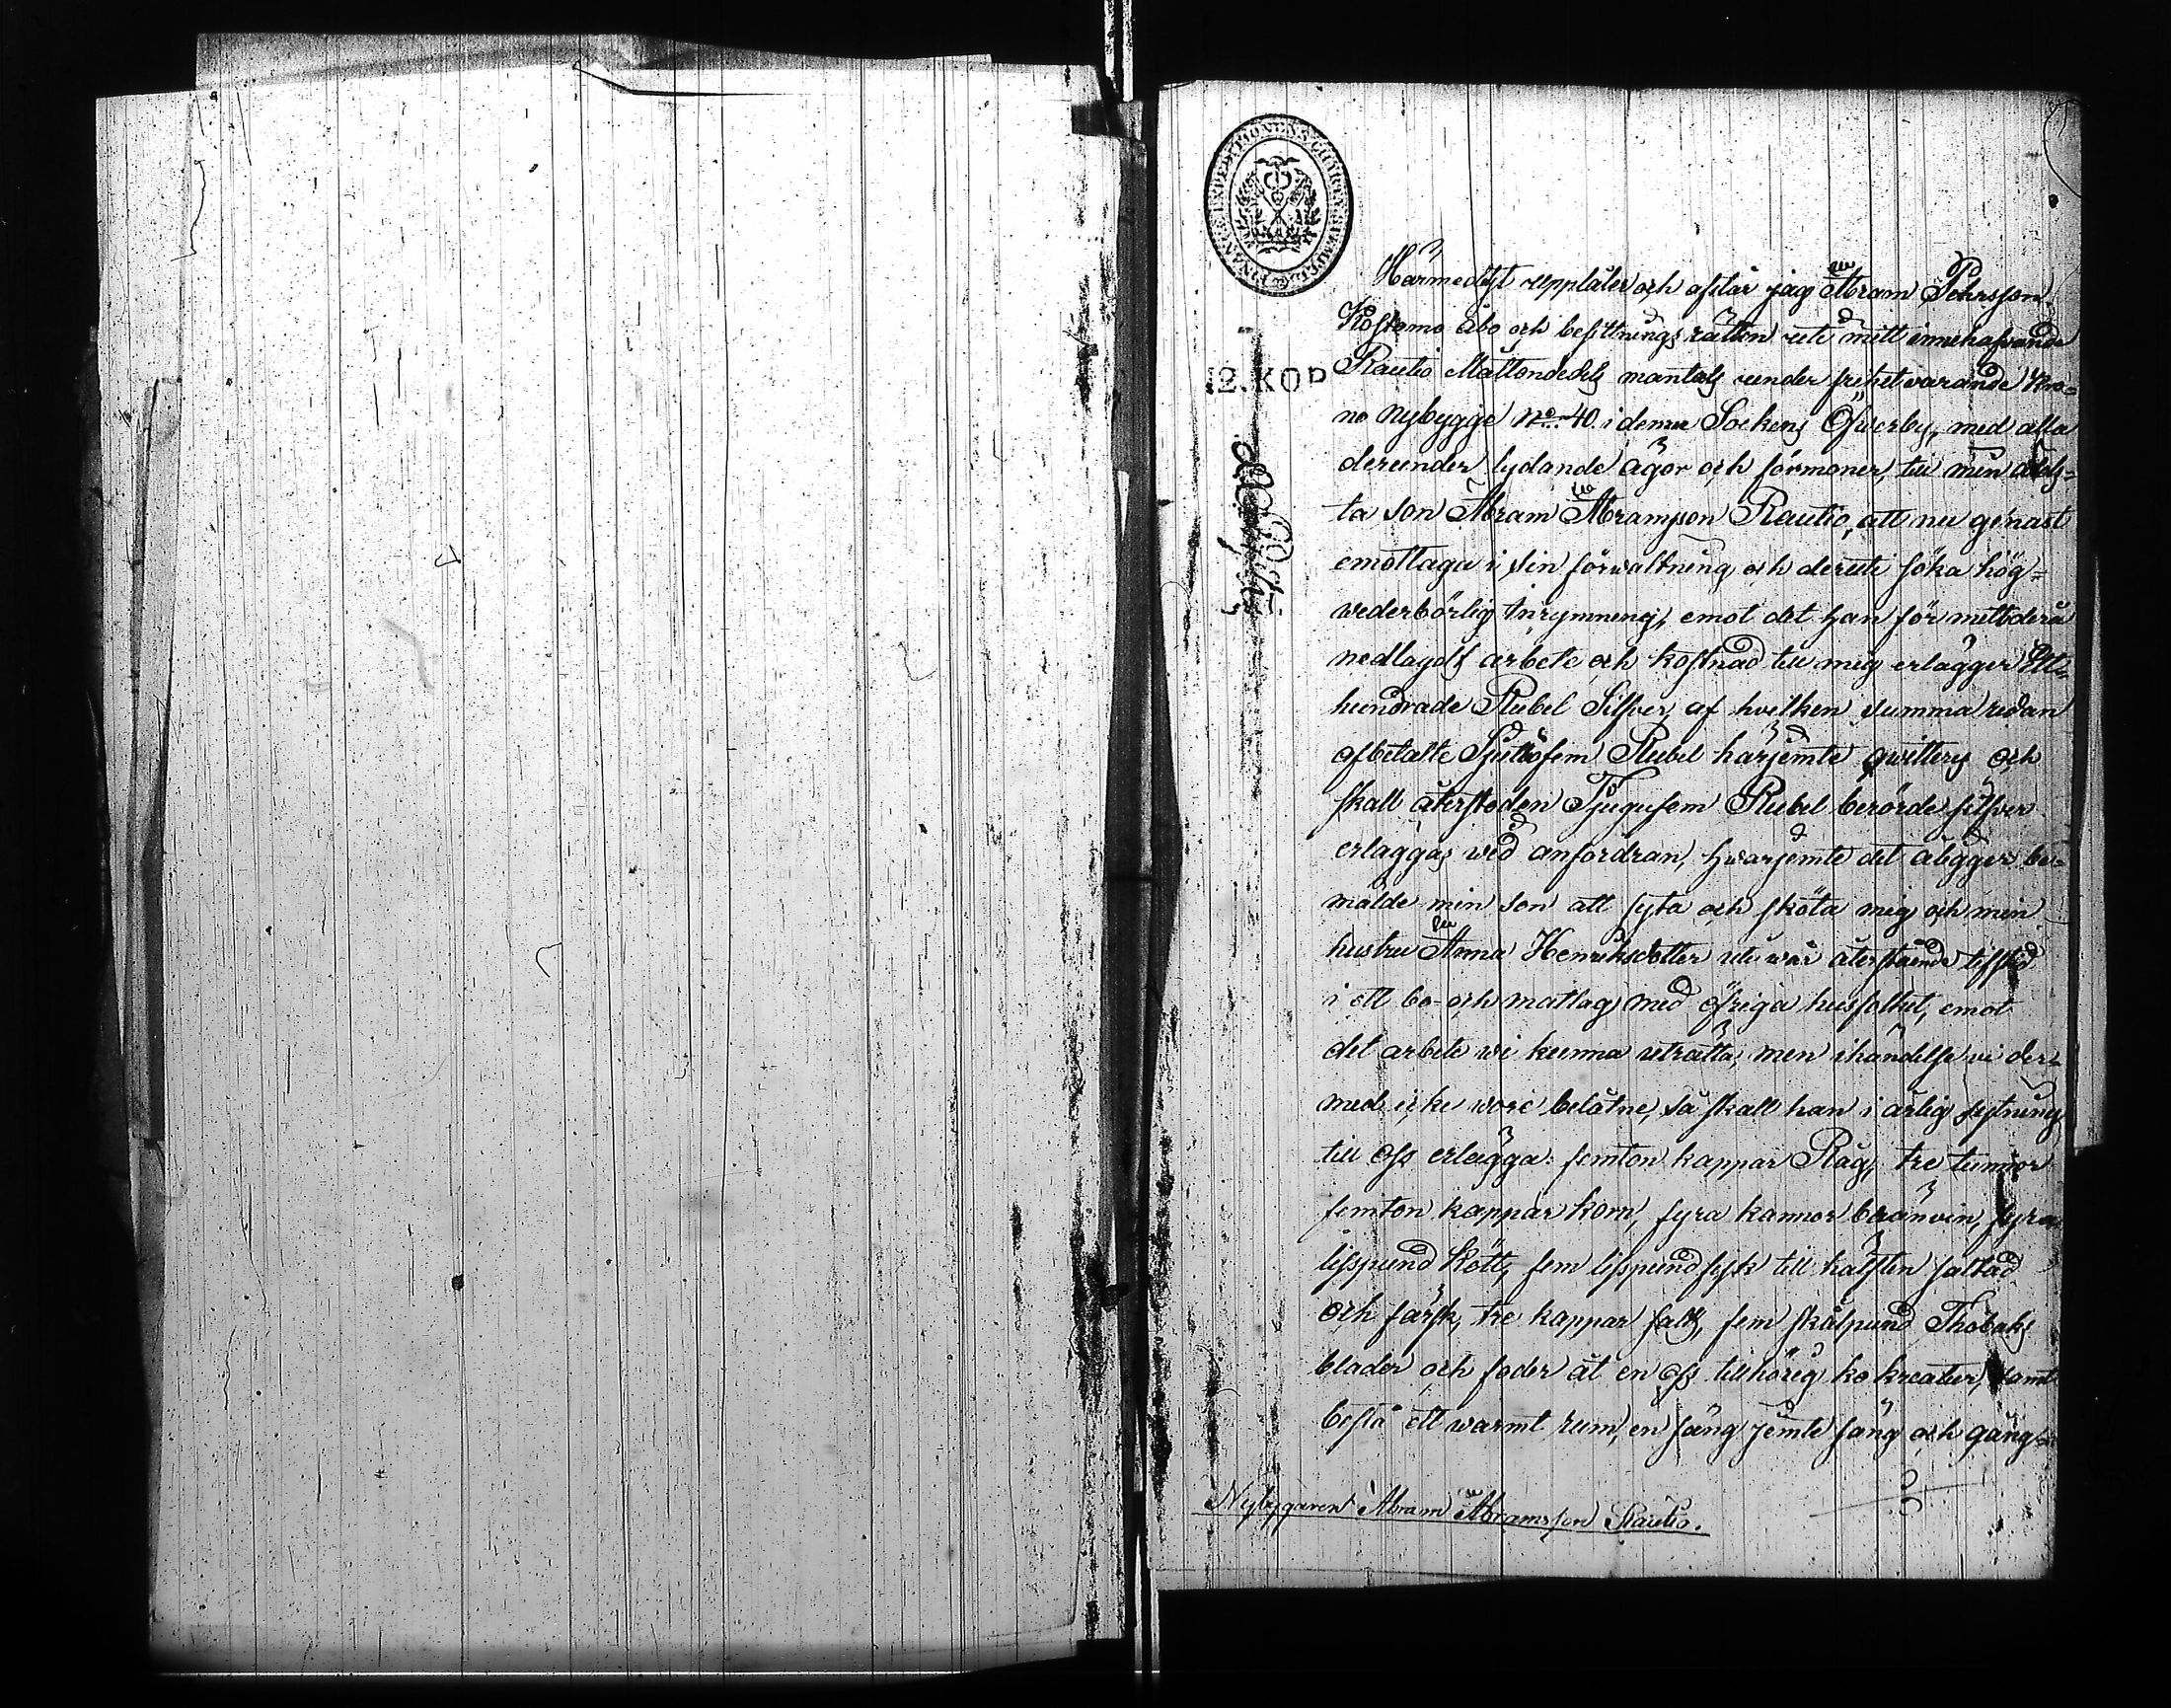 FINANCE EXPEDITIONENS CHARTÆ STEMPEL
12. KOP
Härmedelst upplåter och afstår jag Abram Pehrsson
Kostamo åbo och besittnings rätten uti mitt innehafvande
Rautio Måttondedels mantals under frihet varande Kro-
no Nybygge No 40 i denna Sockens Öfverby, med alla
derunder lydande ägor och förmoner, till min älds-
ta son Abram Abramsson Rautio, att nu genast
emottaga i sin förvaltning och deruti söka hög-
vederbörlig Inrymning, emot det han för mitt derå
nedlagdt arbete och kostnad till mig erlägger Ett-
hundrade Rubel Silfver, af hvilken summa redan
afbetalte Sjuttiofem Rubel härjemte qvitteras och
skall återstoden Tjugufem Rubel berörde silfver
erläggas wid anfordran, hvarjemte det åligger be-
mälde min son att syta och sköta mig och min
hustru Anna Henriksdotter uti vår återstående lifstid
i ett bo- och matlag med öfriga husfolket, emot
det arbete vi kunna uträtta, men i händelse vi der-
med icke wore belåtne, så skall han i årlig sytning
till oss erlägga: femton kappar Råg, tre tunnor
femton kappar korn, fyra kannor bränvin, fyra
lispund kött, fem lispund fisk till hälften saltad
och färsk, tre kappar salt, fem skålpund Thobaks
blader och foder åt en oss tillhörig ko kreatur, samt
bestå ett warmt rum, en säng jemte säng och gång
Nybyggaren Abram Abramsson Rautio.